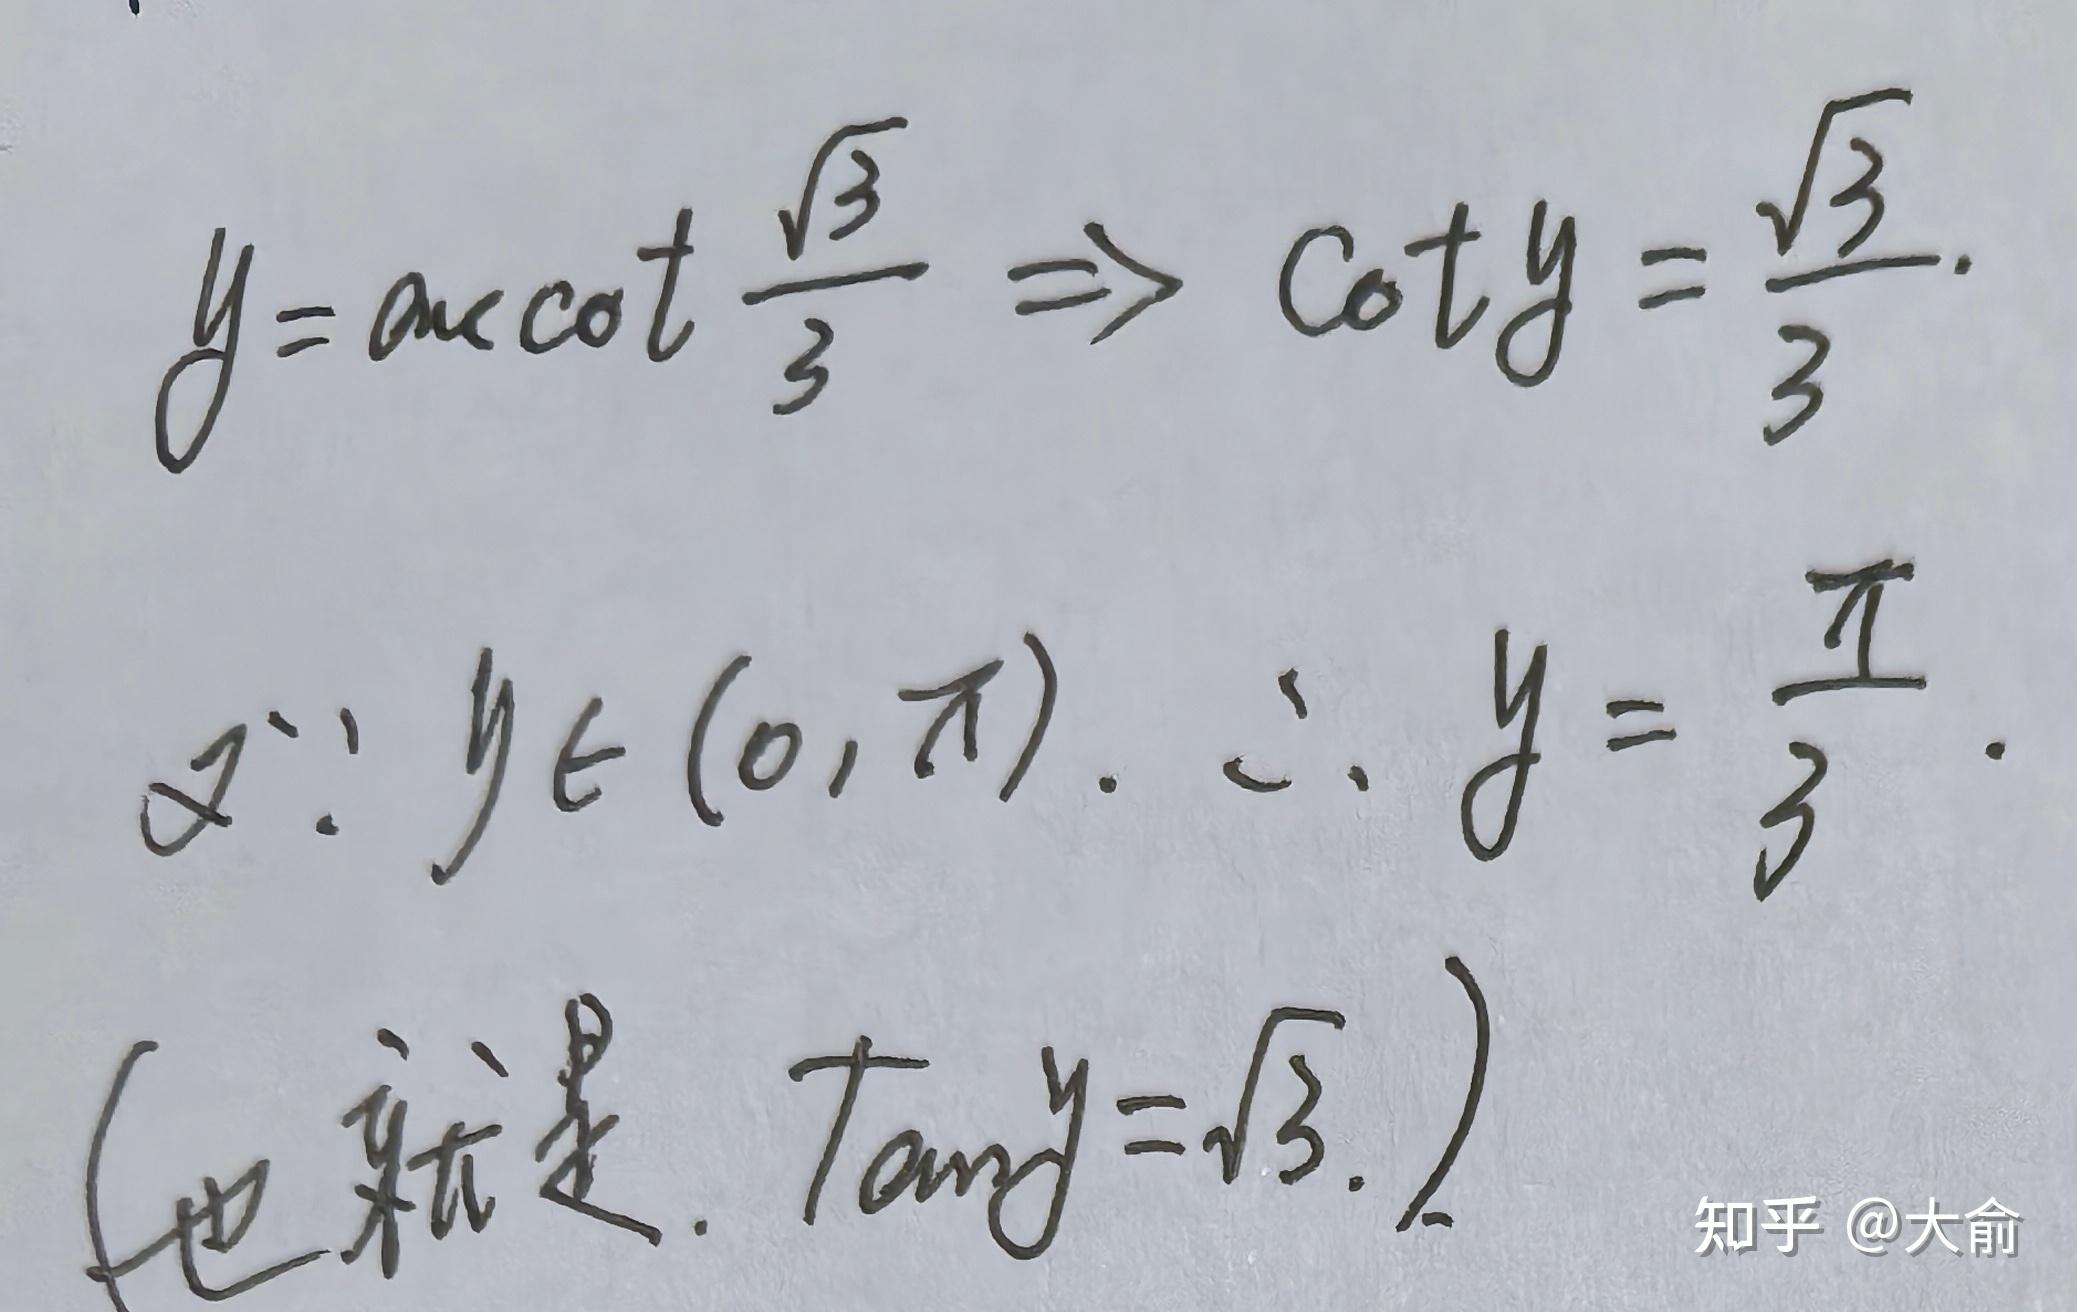 y = arccot √3/3 ⇒ cot y = √3/3.
又∵ y ∈ (0, π). ∴ y = π/3.
(也就是. Tan y = √3.)
知乎 @大俞